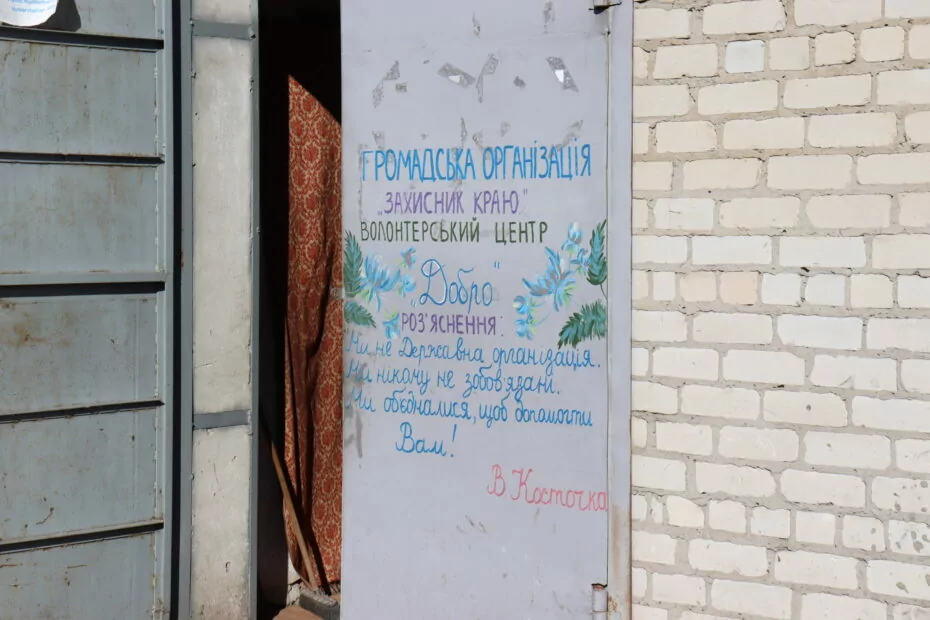 ГРОМАДСЬКА ОРГАНІЗАЦІЯ
„ЗАХИСНИК КРАЮ"
ВОЛОНТЕРСЬКИЙ ЦЕНТР
„Добро"
РОЗ'ЯСНЕННЯ:
Ми не Державна організація.
Ми нікому не зобов'язані.
Ми об'єдналися, щоб допомогти
Вам!
В Косточка